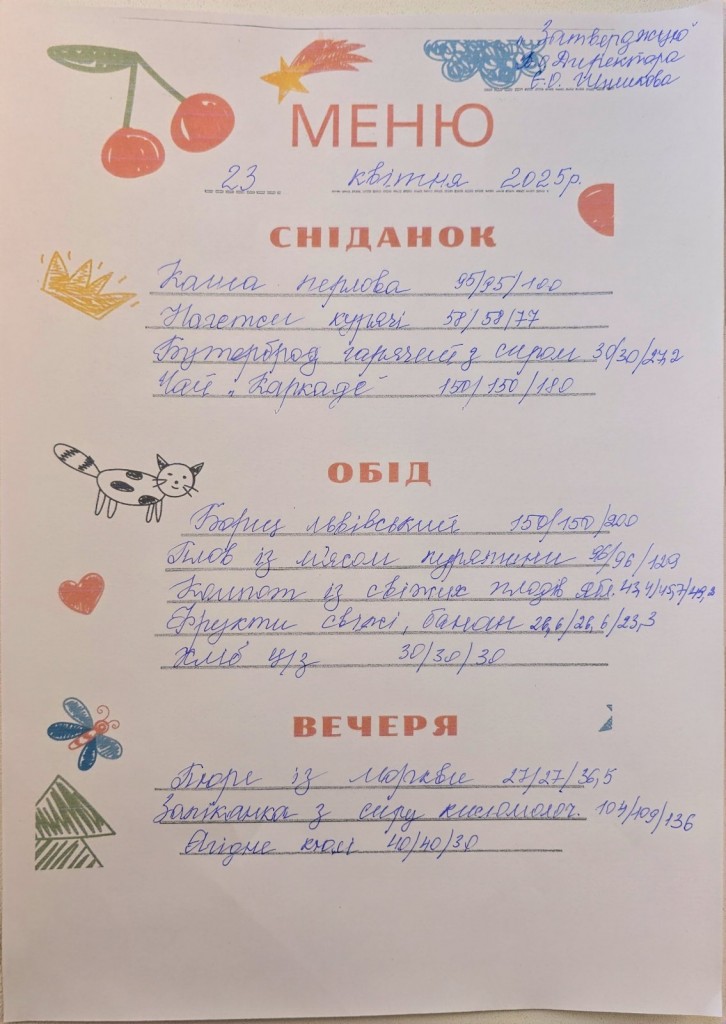 "Затверджую"
Директора
МЕНЮ
23 квітня 2025р.
СНІДАНОК
Каша перлова 95/95/100
Нагетси курячі 58/58/77
Бутерброд гарячий з сиром 30/30/27,2
Чай "Каркаде" 150/150/180
ОБІД
Борщ львівський 150/150/200
Плов із м'ясом курятини 96/96/129
Компот із свіжих плодів ябл.
Фрукти свіжі, банан 26,6/26,6/23,3
Хліб ц/з 30/30/30
ВЕЧЕРЯ
Пюре із моркви 27/27/36,5
Запіканка з сиру кисломолоч. 104/109/136
Ягідне кюлі 40/40/30